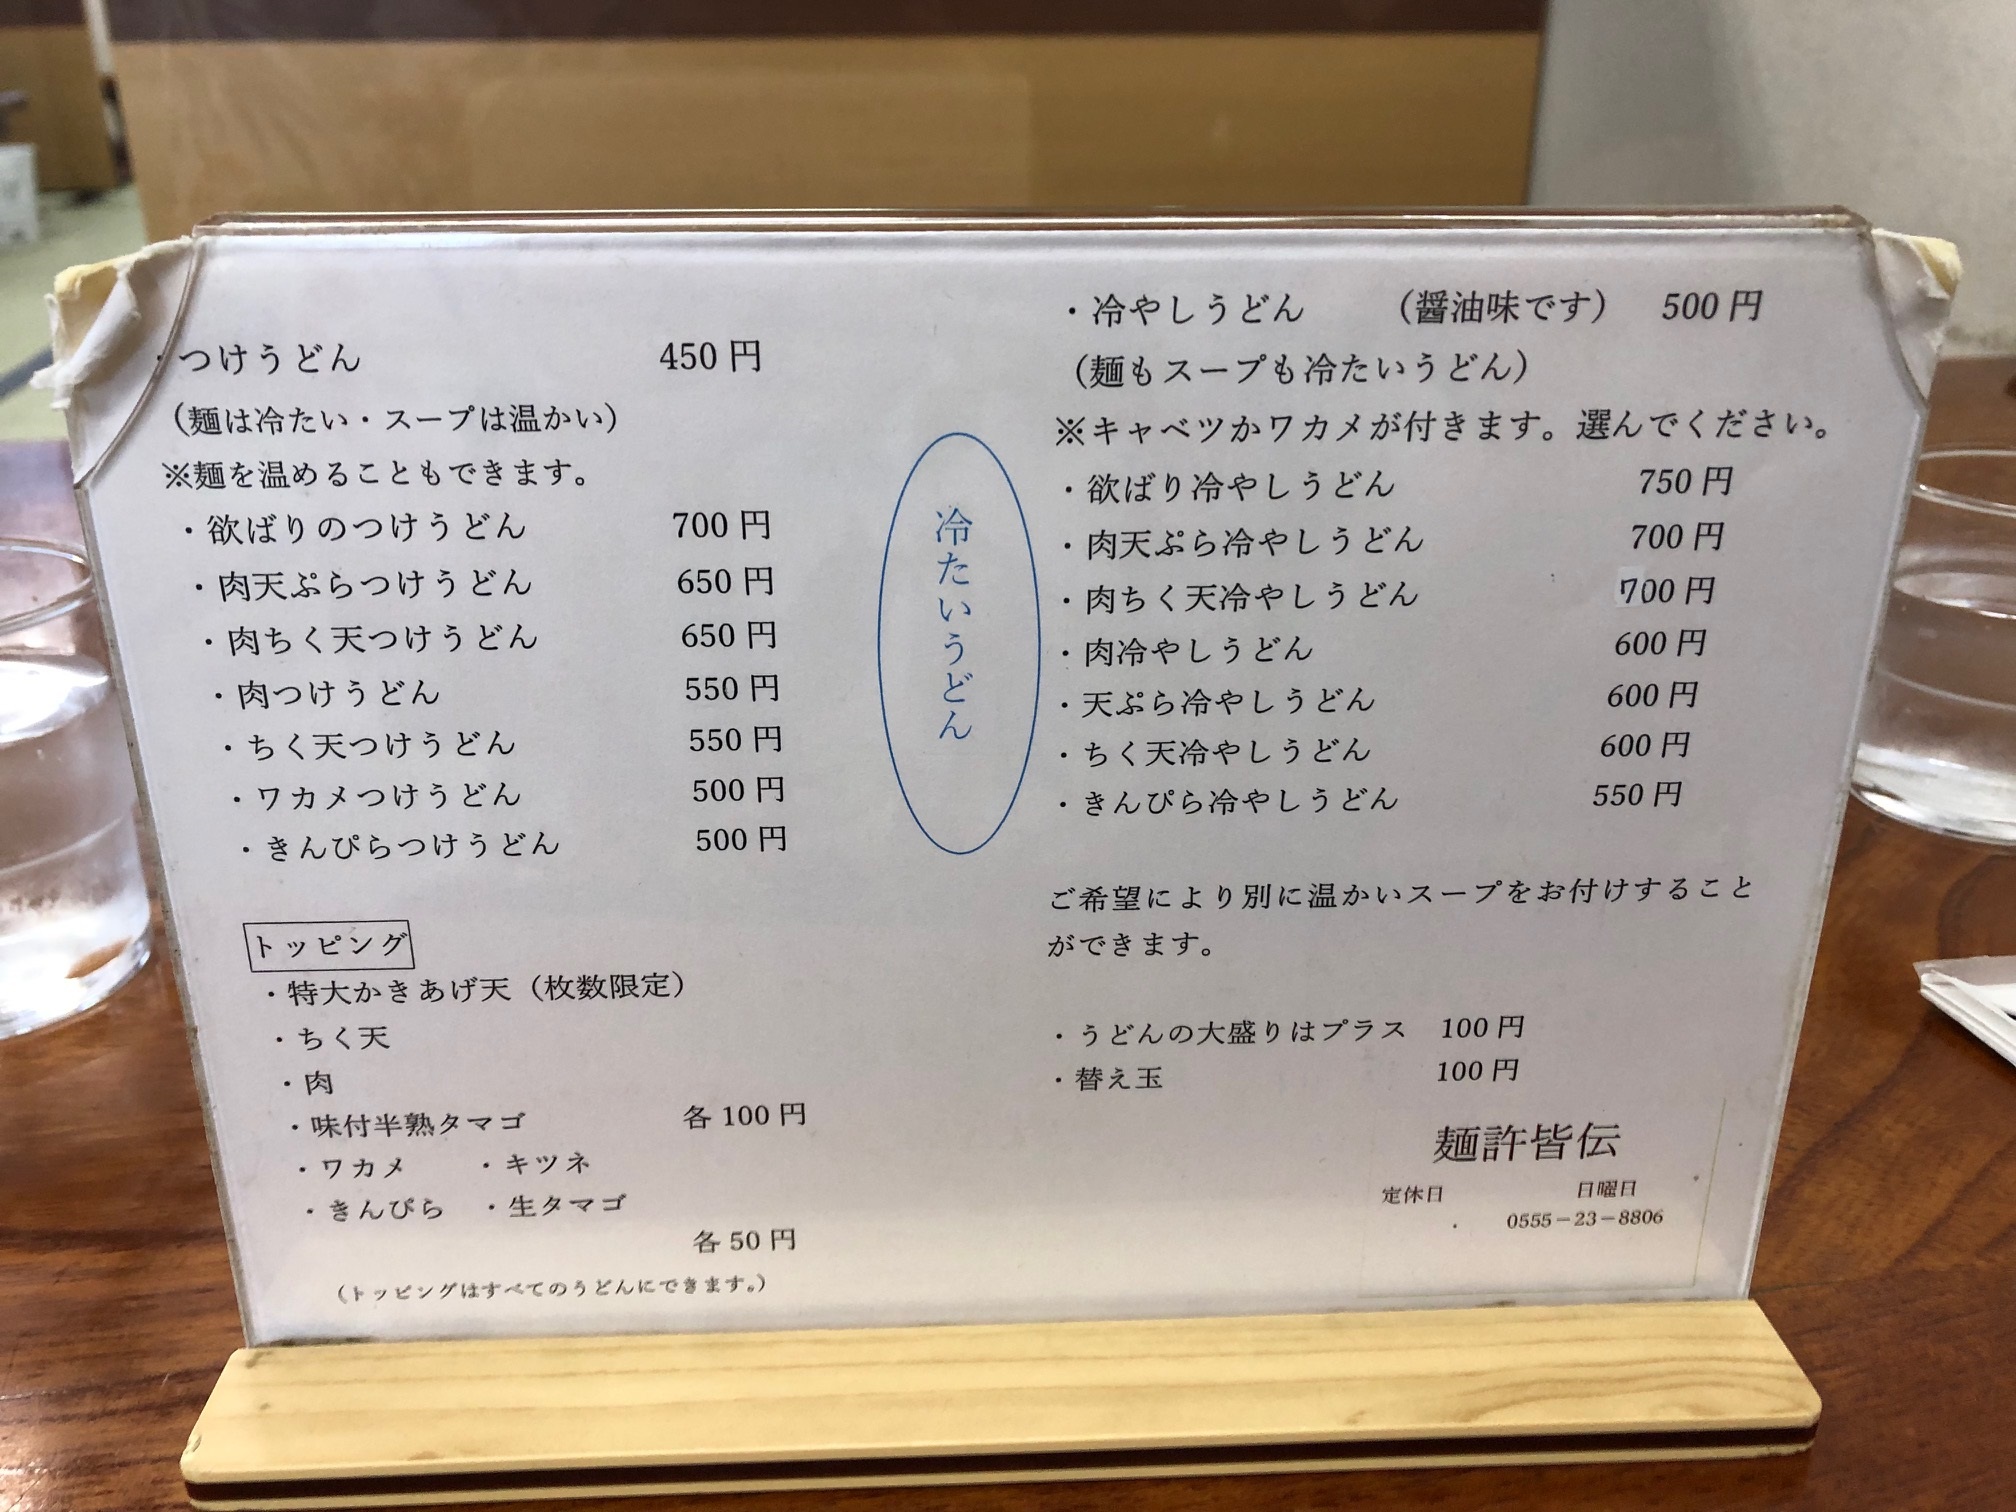 ・つけうどん 450円
(麺は冷たい・スープは温かい)
※麺を温めることもできます。
・欲ばりのつけうどん 700円
・肉天ぷらつけうどん 650円
・肉ちく天つけうどん 650円
・肉つけうどん 550円
・ちく天つけうどん 550円
・ワカメつけうどん 500円
・きんぴらつけうどん 500円
トッピング
・特大かきあげ天（枚数限定）
・ちく天
・肉
・味付半熟タマゴ 各100円
・ワカメ ・キツネ
・きんぴら ・生タマゴ
各50円
(トッピングはすべてのうどんにできます。)
冷たいうどん
・冷やしうどん （醤油味です） 500円
(麺もスープも冷たいうどん)
※キャベツかワカメが付きます。選んでください。
・欲ばり冷やしうどん 750円
・肉天ぷら冷やしうどん 700円
・肉ちく天冷やしうどん 700円
・肉冷やしうどん 600円
・天ぷら冷やしうどん 600円
・ちく天冷やしうどん 600円
・きんぴら冷やしうどん 550円
ご希望により別に温かいスープをお付けすること
ができます。
・うどんの大盛りはプラス 100円
・替え玉 100円
麺許皆伝
定休日 日曜日
0555－23－8806